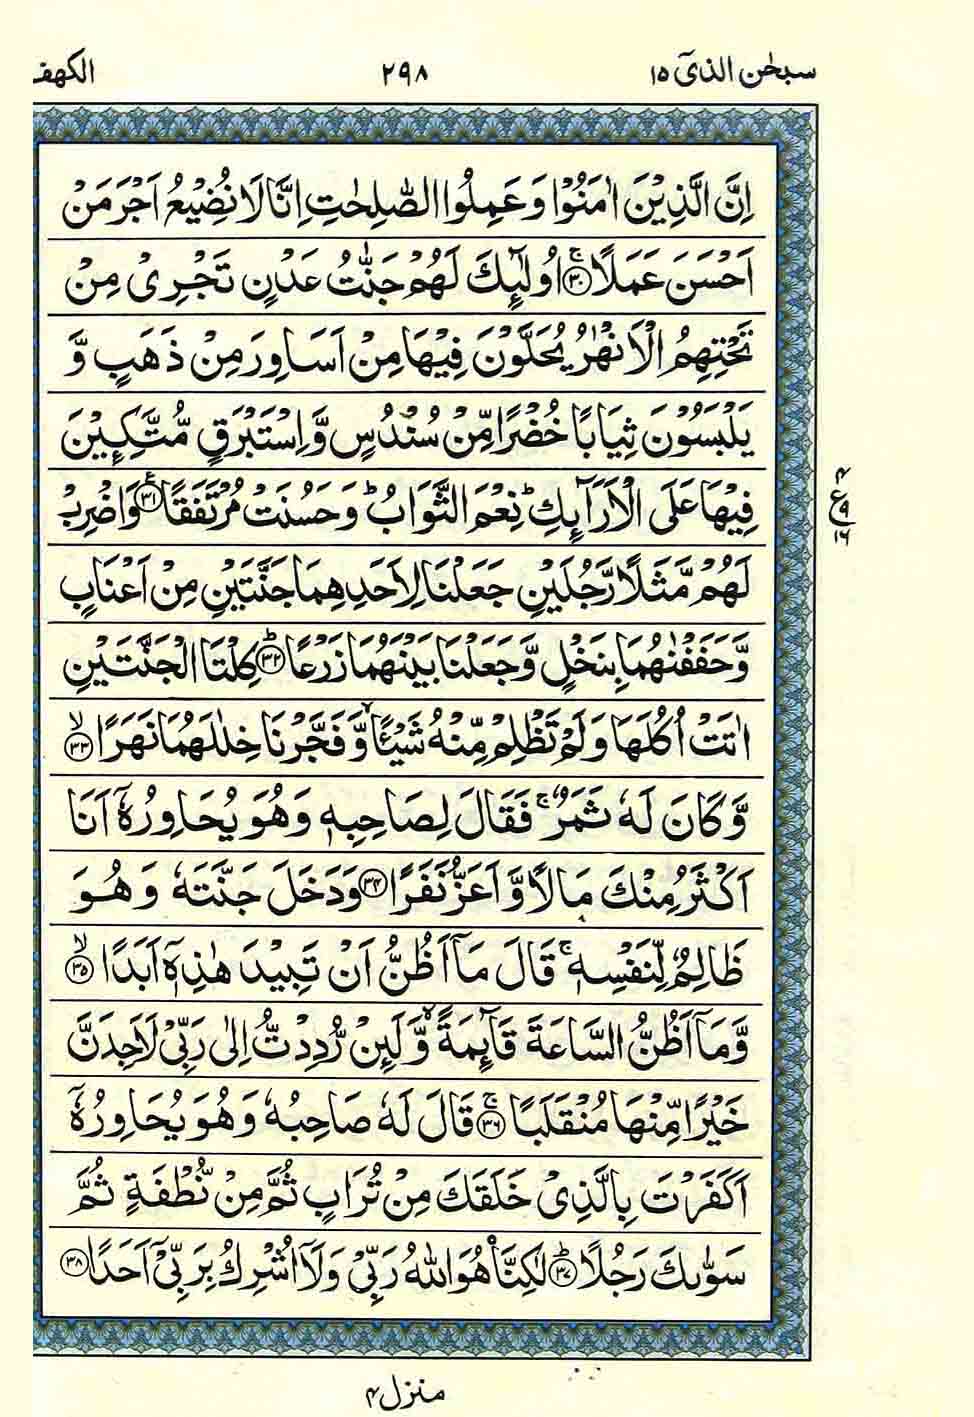 سبحٰن الذیٓ ١٥
٢٩٨
الکهف
اِنَّ الَّذِیْنَ اٰمَنُوْا وَ عَمِلُوا الصّٰلِحٰتِ اِنَّا لَا نُضِیْعُ اَجْرَ مَنْ
اَحْسَنَ عَمَلًا ۚ‏﴿٣٠﴾ اُولٰٓئِكَ لَهُمْ جَنّٰتُ عَدْنٍ تَجْرِیْ مِنْ
تَحْتِهِمُ الْاَنْهٰرُ یُحَلَّوْنَ فِیْهَا مِنْ اَسَاوِرَ مِنْ ذَهَبٍ وَّ
یَلْبَسُوْنَ ثِیَابًا خُضْرًا مِّنْ سُنْدُسٍ وَّ اِسْتَبْرَقٍ مُّتَّكِـِٕیْنَ
فِیْهَا عَلَی الْاَرَآئِكِ ؕ نِعْمَ الثَّوَابُ ؕ وَ حَسُنَتْ مُرْتَفَقًا ﴿٣١﴾ وَ اضْرِبْ
٤
ع
٩
١٦
لَهُمْ مَّثَلًا رَّجُلَیْنِ جَعَلْنَا لِاَحَدِهِمَا جَنَّتَیْنِ مِنْ اَعْنَابٍ
وَّ حَفَفْنٰهُمَا بِنَخْلٍ وَّ جَعَلْنَا بَیْنَهُمَا زَرْعًا ؕ‏﴿٣٢﴾ كِلْتَا الْجَنَّتَیْنِ
اٰتَتْ اُكُلَهَا وَ لَمْ تَظْلِمْ مِّنْهُ شَیْـًٔا ۙ وَّ فَجَّرْنَا خِلٰلَهُمَا نَهَرًا ۙ‏﴿٣٣﴾
وَّ كَانَ لَهٗ ثَمَرٌ ۚ فَقَالَ لِصَاحِبِهٖ وَ هُوَ یُحَاوِرُهٗۤ اَنَا
اَكْثَرُ مِنْكَ مَالًا وَّ اَعَزُّ نَفَرًا ﴿٣٤﴾ وَ دَخَلَ جَنَّتَهٗ وَ هُوَ
ظَالِمٌ لِّنَفْسِهٖ ۚ قَالَ مَاۤ اَظُنُّ اَنْ تَبِیْدَ هٰذِهٖۤ اَبَدًا ۙ‏﴿٣٥﴾
وَّ مَاۤ اَظُنُّ السَّاعَةَ قَآئِمَةً ۙ وَّ لَئِنْ رُّدِدْتُّ اِلٰی رَبِّیْ لَاَجِدَنَّ
خَیْرًا مِّنْهَا مُنْقَلَبًا ۚ‏﴿٣٦﴾ قَالَ لَهٗ صَاحِبُهٗ وَ هُوَ یُحَاوِرُهٗۤ
اَكَفَرْتَ بِالَّذِیْ خَلَقَكَ مِنْ تُرَابٍ ثُمَّ مِنْ نُّطْفَةٍ ثُمَّ
سَوّٰىكَ رَجُلًا ؕ‏﴿٣٧﴾ لٰكِنَّا۠ هُوَ اللّٰهُ رَبِّیْ وَ لَاۤ اُشْرِكُ بِرَبِّیْۤ اَحَدًا ﴿٣٨﴾
منزل ٤